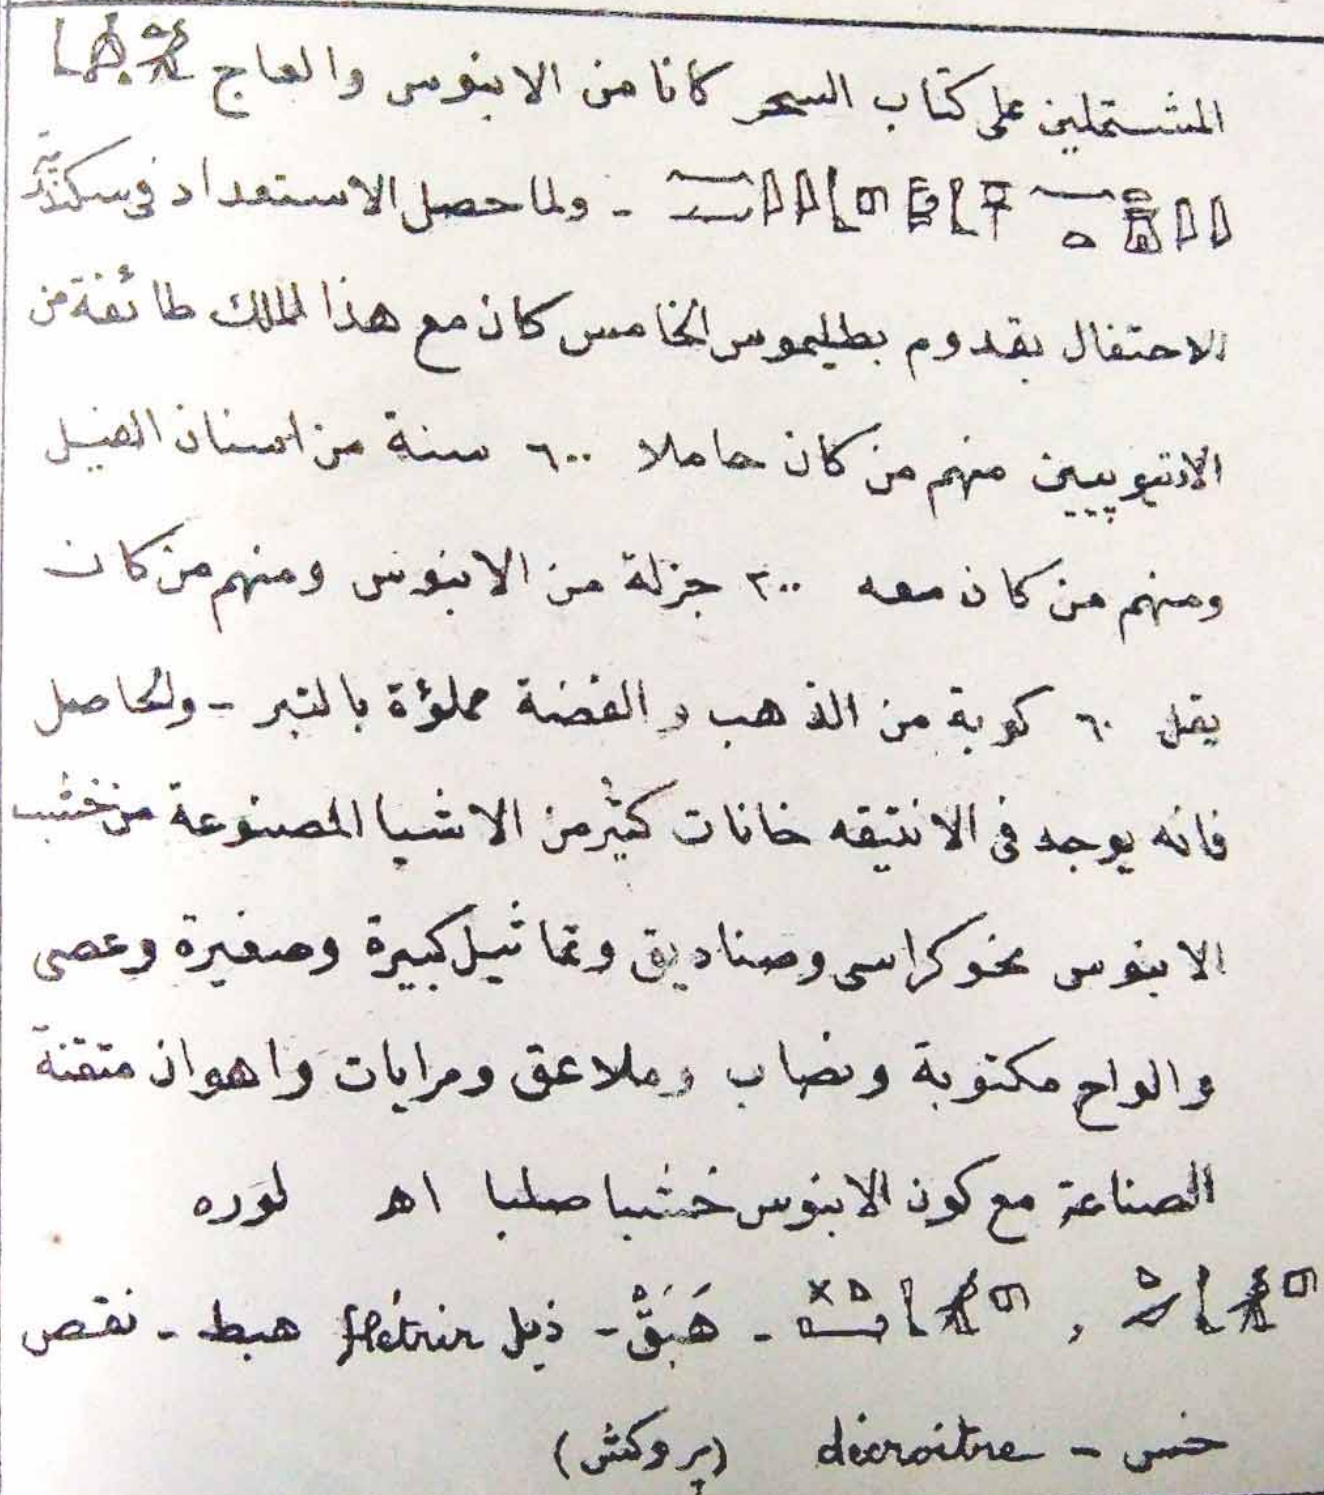 المشتملين على كتاب السحر كانا من الابنوس والعاج
- ولما حصل الاستعداد فى
للاحتفال بقدوم بطليموس الخامس كان مع هذا الملك طائفة من
الاتيوپيين منهم من كان حاملا ٦٠٠ سنة من اسنان الفيل
ومنهم من كان معه ٢٠٠ جزلة من الابنوس ومنهم من كان
يقل ٦٠ كوبة من الذهب والفضة مملؤة بالتبر - والحاصل
فانه يوجد فى الانتيقه خانات كثير من الاشيا المصنوعة من خشب
الابنوس نحو كراسى وصناديق وتماثيل كبيرة وصغيرة وعصى
والواح مكتوبة ونصاب وملاعق ومرايات واهوان متقنة
الصناعة مع كون الابنوس خشبا صلبا اه لوره
- هَبَقْ - ذبل flétrir هبط - نقص
خس - décroitre (پروكش)